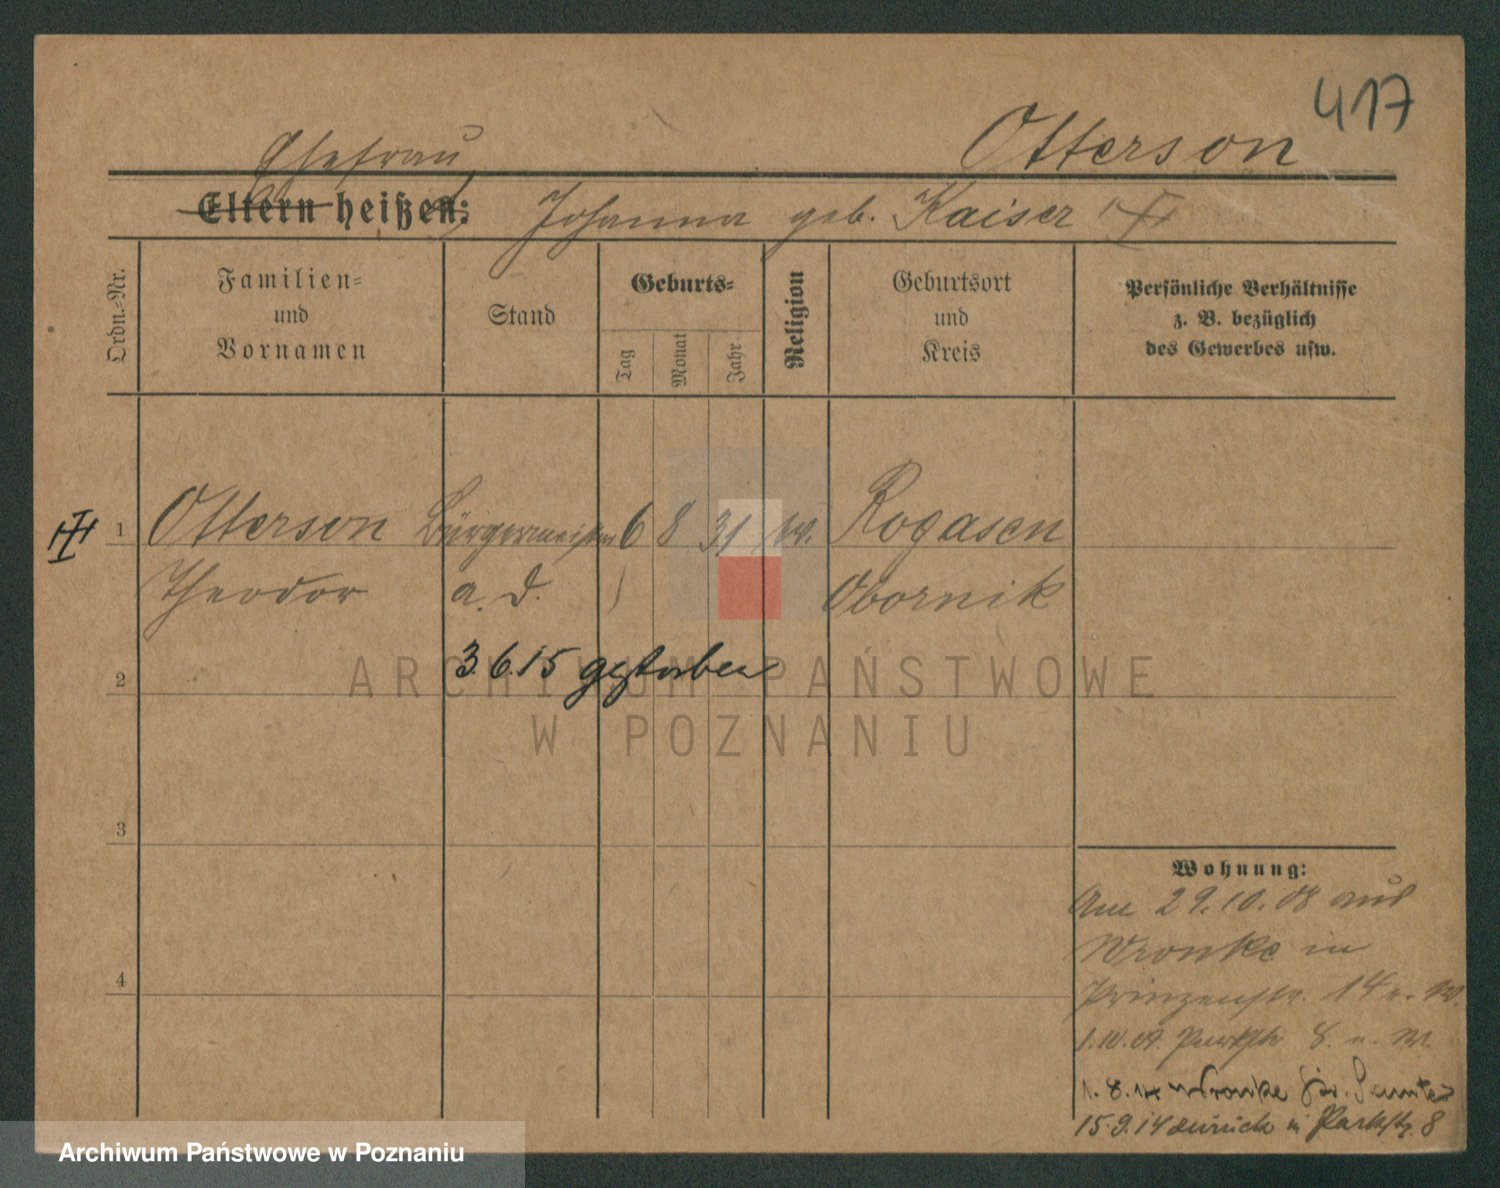 417
Otterson
Ehefrau
Eltern heißen: Johanna geb. Kaiser
Ordn.-Nr.
Familien-
und
Vornamen
Stand
Geburts-
Tag
Monat
Jahr
Religion
Geburtsort
und
Kreis
Persönliche Verhältnisse
z. B. bezüglich
des Gewerbes usw.
1 Otterson Bürgermeister 6 8 31 Rogasen
Theodor a. D. Obornik
2 3.6.15 gestorben
3
4
Wohnung:
Am 29.10.08 aus
Wronke in
Prinzenstr. 14
1.10.09. Parkstr. 8.
1.8.14 Wronke Kr. Samter
15.9.14 zurück in Parkstr. 8
ARCHIWUM PAŃSTWOWE
W POZNANIU
Archiwum Państwowe w Poznaniu